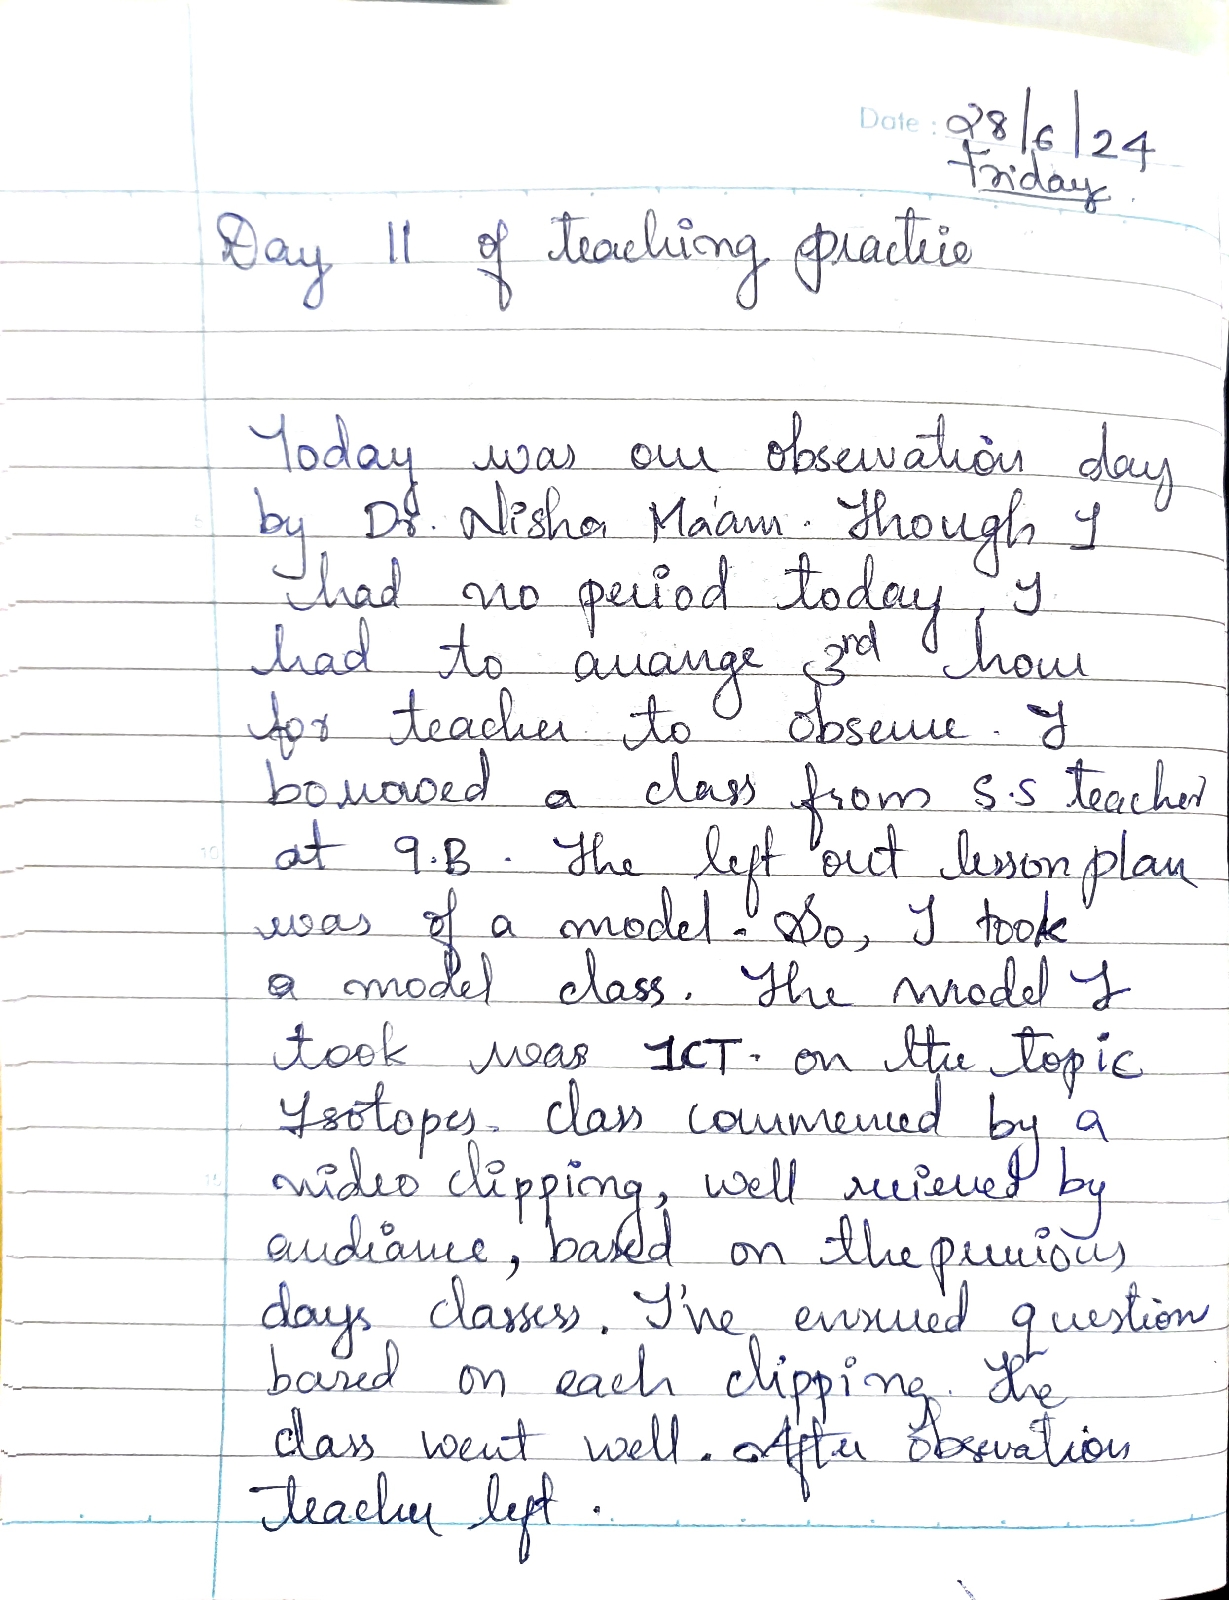 Date : 28/6/24
Friday
Day 11 of teaching practice
Today was our observation day
by Dr. Nisha Ma'am. Though I
had no period today, I
had to arrange 3rd hour
for teacher to observe. I
borrowed a class from S.S teacher
at 9.B. The left out lesson plan
was of a model. So, I took
a model class. The model I
took was ICT. on the topic
Isotopes. Class commenced by a
video clipping, well recieved by
audiance, based on the previous
days classess. I've ensured question
based on each clipping. The
class went well. After observation
teacher left.